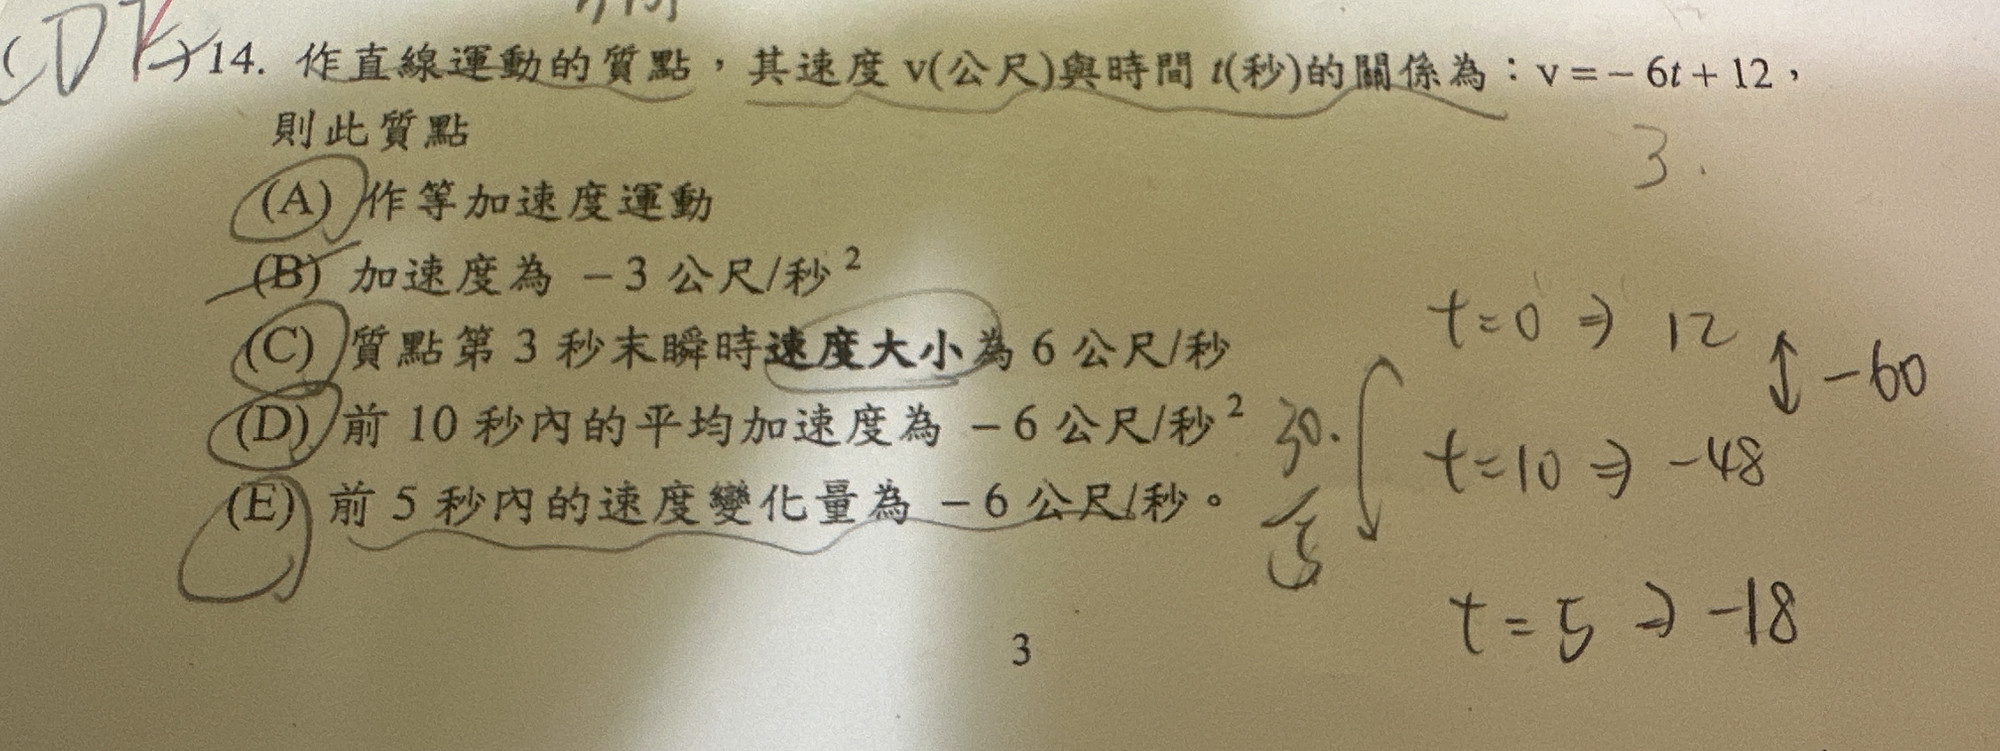 (CD E)14. 作直線運動的質點，其速度 v(公尺)與時間 t(秒)的關係為：v = − 6t + 12，
則此質點
3.
(A) 作等加速度運動
(B) 加速度為 − 3 公尺/秒²
(C) 質點第 3 秒末瞬時速度大小為 6 公尺/秒
(D) 前 10 秒內的平均加速度為 − 6 公尺/秒²
(E) 前 5 秒內的速度變化量為 − 6 公尺/秒。
t=0 ⇒ 12
-60
t=10 ⇒ -48
30.
5
t=5 ⇒ -18
3